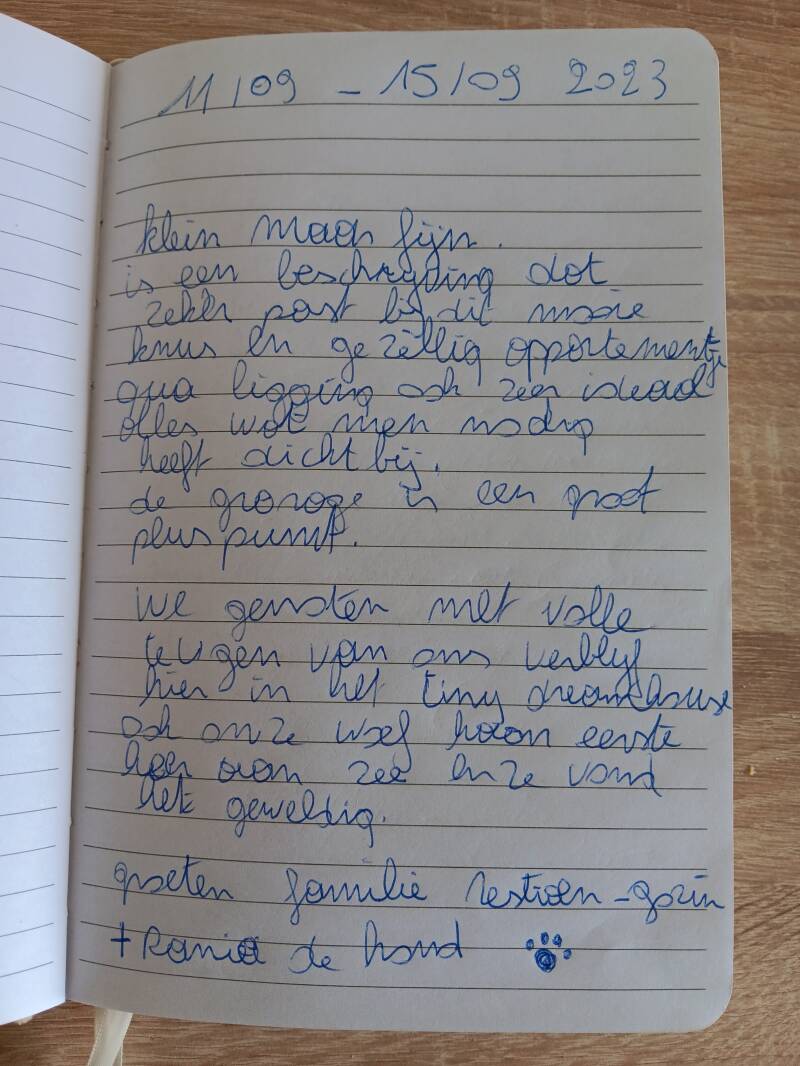 11/09 - 15/09 2023
klein maar fijn.
is een beschrijving dat
zeker past bij dit mooie
knus en gezellig appartementje
qua ligging ook zeer ideaal
alles wat men nodig
heeft dicht bij.
de garage is een groot
pluspunt.
we genoten met volle
teugen van ons verblijf
hier in het tiny dreamhouse
ook onze woef haar eerste
keer aan zee en ze vond
het geweldig.
groeten familie
+ Rania de hond